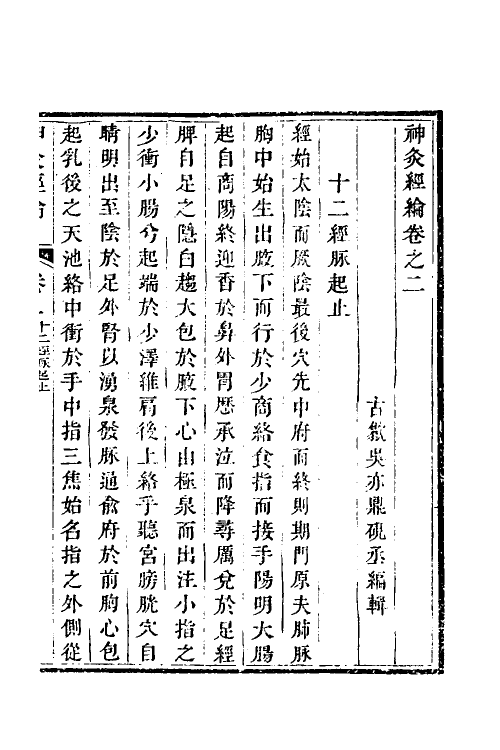 神灸經綸卷之二
古歙吳亦鼎硯丞編輯
十二經脉起止
經始太陰而厥陰最後穴先中府而終則期門原夫肺脉
胸中始生出腋下而行於少商絡食指而接手陽明大腸
起自商陽終迎香於鼻外胃歷承泣而降尋厲兌於足經
脾自足之隱白趨大包於腋下心由極泉而出注小指之
少衝小腸兮起端於少澤維肩後上絡乎聽宮膀胱穴自
睛明出至陰於足外腎以湧泉發脉通俞府於前胸心包
起乳後之天池絡中衝於手中指三焦始名指之外側從
神灸經綸 卷二 十二經脉起止